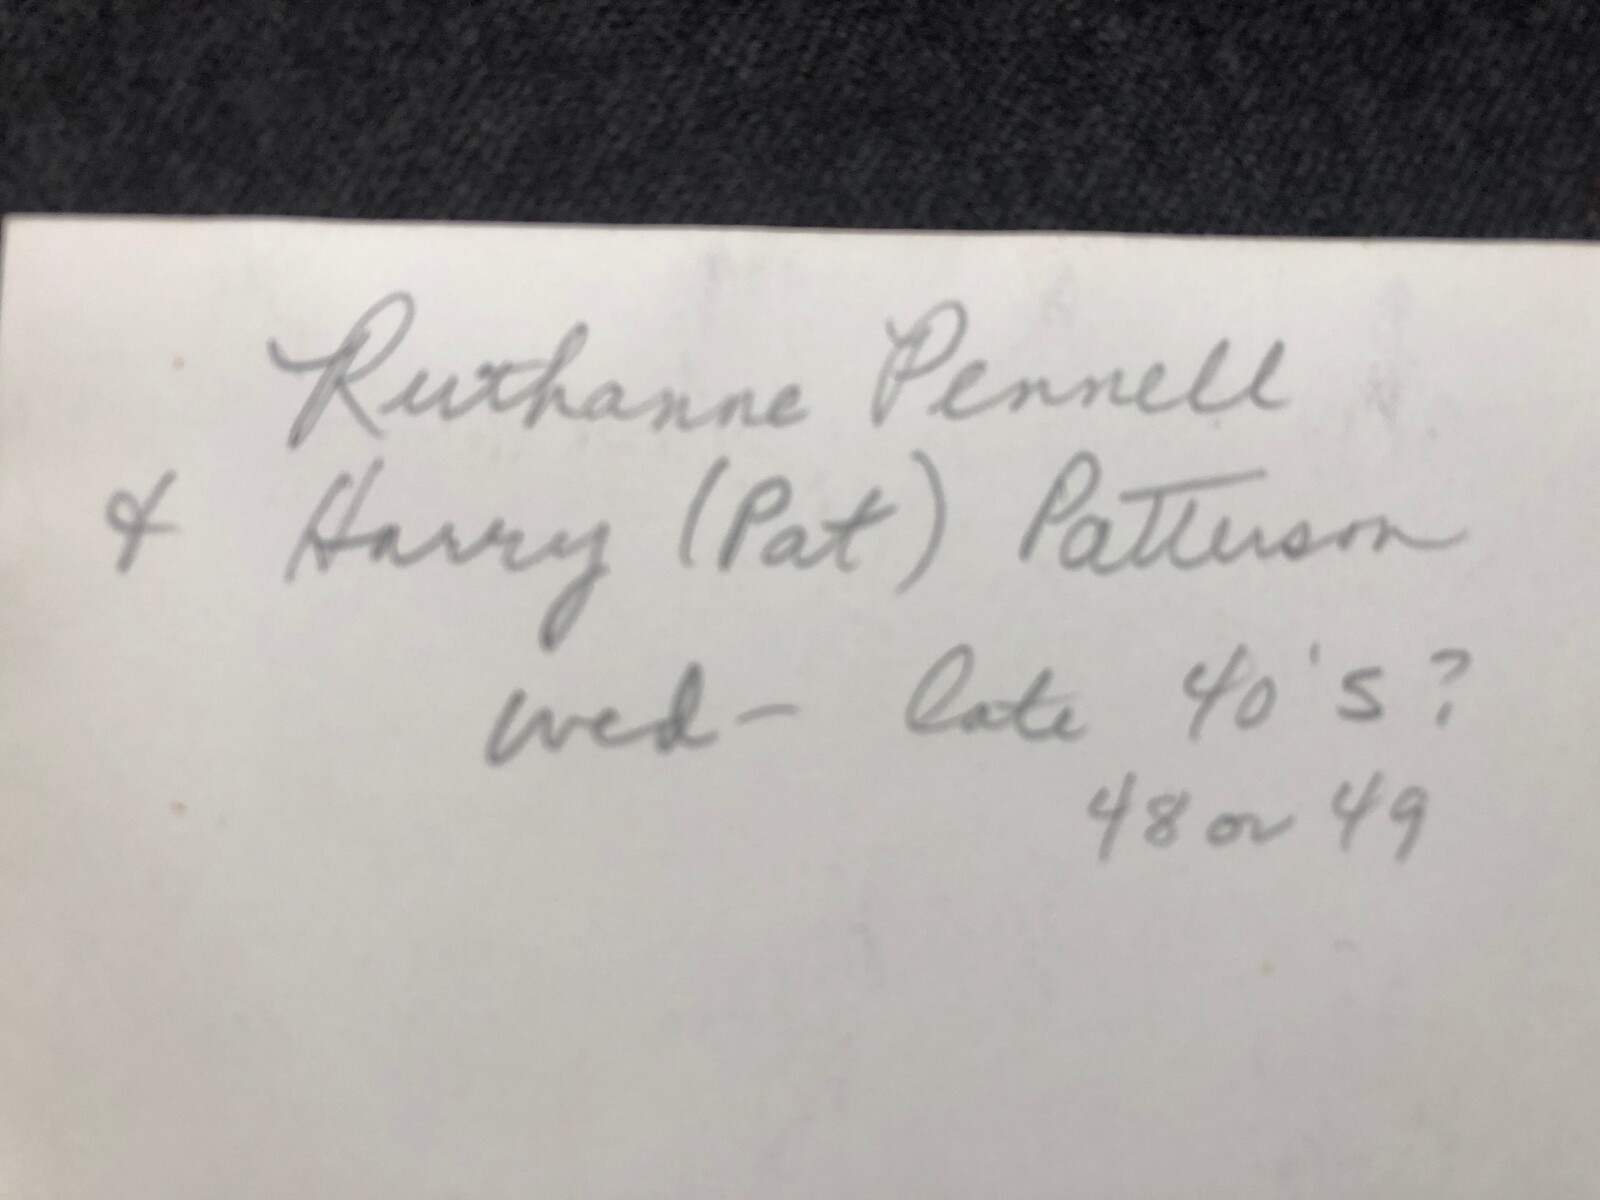 Ruthanne Pennell
& Harry (Pat) Patterson
wed - late 40's?
48 or 49